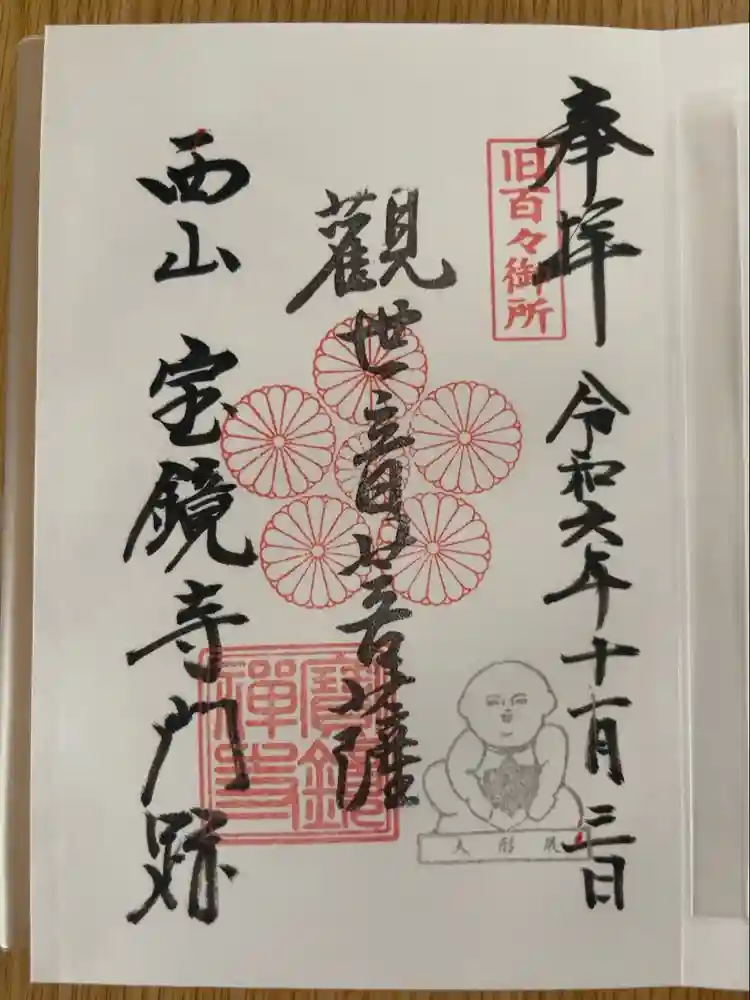 奉拝
旧百々御所
令和六年十一月三日
觀世音菩薩
寶鏡禅寺
人形展
西山 宝鏡寺門跡